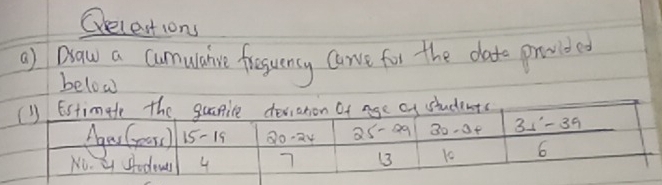 Questions
a) Draw a Cumulative frequency Curve for the data provided
below
(i) Estimate the quartile deviation of age of students
Ages (years) 15-19 20-24 25-29 30-34 35-39
No. of students 4 7 13 10 6